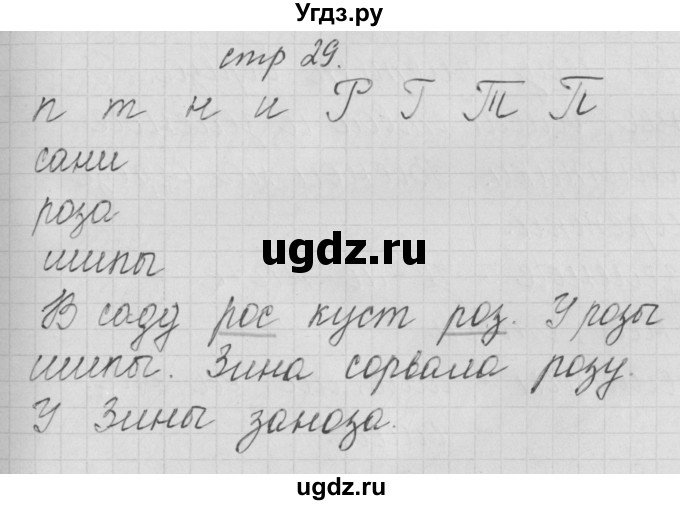 Угдз.ру
стр 29.
п т н и Р Г Т П
сани
роза
ugdz.ru
шипы
В саду рос куст роз. У розы
шипы. Зина сорвала розу.
У Зины заноза.
ugdz.ru